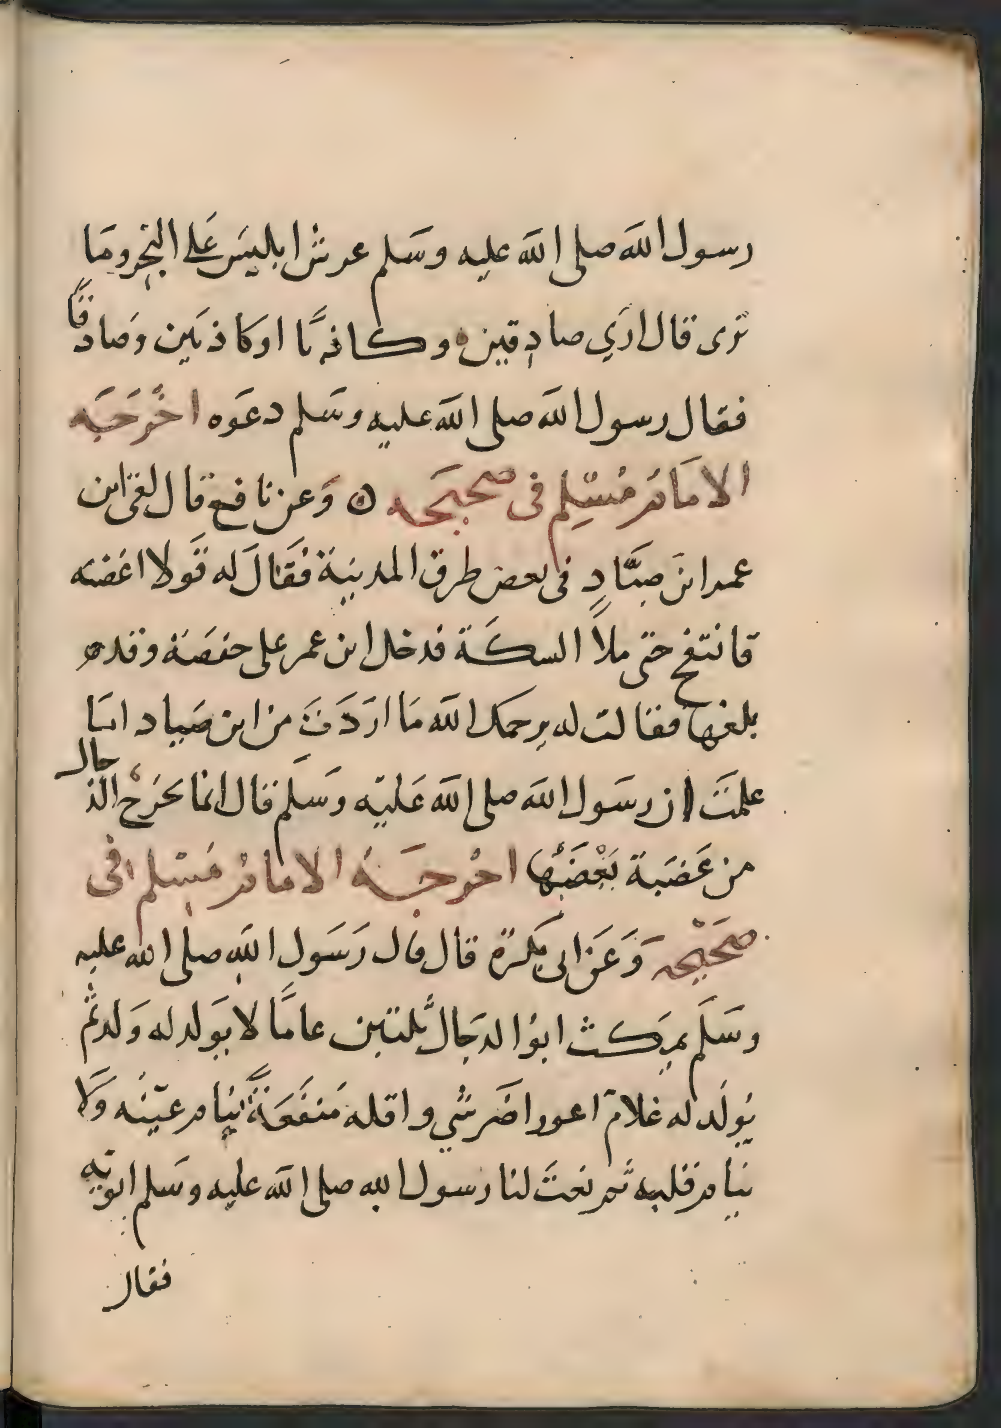 رسول الله صلى الله عليه وسلم عرش ابليس على البحر وما
ترى قال ارى صادقين وكاذبا او كاذبين وصادقا
فقال رسول الله صلى الله عليه وسلم دعوه اخرجه
الامام مسلم فى صحيحه وعن نافع قال لقى ابن
عمر ابن صياد فى بعض طرق المدينة فقال له قولا اغضبه
فانتفخ حتى ملأ السكة فدخل ابن عمر على حفصة وقد
بلغها فقالت له يرحمك الله ما اردت من ابن صياد اما
علمت ان رسول الله صلى الله عليه وسلم قال انما يخرج الدجال
من غضبة يغضبها اخرجه الامام مسلم فى
صحيحه وعن ابى بكرة قال قال رسول الله صلى الله عليه
وسلم يمكث ابوا الدجال ثلثين عاما لا يولد له ولد ثم
يولد له غلام اعور اضر شي واقله منفعة تنام عينه ولا
ينام قلبه ثم نعت لنا رسول الله صلى الله عليه وسلم ابويه
فقال